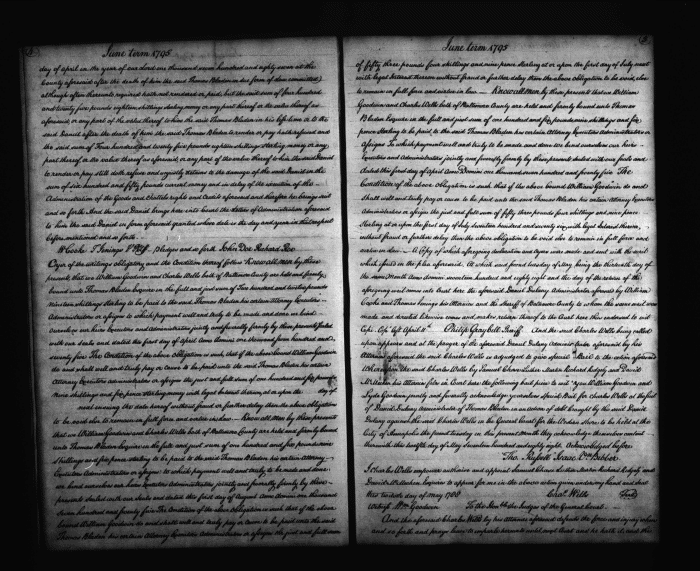 June term 1795
day of April in the year of our lord one thousand seven hundred and eighty seven at the
County aforesaid after the death of him the said Thomas Bladen in due form of law committed)
although often thereunto required hath not rendered or paid, but the said sum of four hundred
and twenty five pounds eighteen shillings sterling money or any part thereof or the value thereof as
aforesaid or any part of the value thereof to him the said Thomas Bladen in his life time or to the
said Daniel after the death of him the said Thomas Bladen to render or pay hath refused and
the said sum of Four hundred and twenty five pounds eighteen shillings Sterling money or any
part thereof or the value thereof as aforesaid or any part of the value thereof to him the said Daniel
to render or pay still doth refuse and unjustly detains to the damage of the said Daniel in the
sum of six hundred and fifty pounds current money and in delay of the execution of the
Administration of the Goods and Chattels rights and Credits aforesaid and therefore he brings suit
and so forth And the said Daniel brings here into Court the letters of Administration aforesaid
to him the said Daniel in form aforesaid granted whose date is the day and year in that respect
before mentioned and so forth
W Cooke T Jenings P Atty. Pledges and so forth John Doe Richard Roe
Oyer of the writings obligatory and the Condition thereof follow Know all men by these
presents that we William Goodwin and Charles Wells both of Baltimore County are held and firmly
bound unto Thomas Bladen Esquire in the full and just sum of
shillings Sterling to be paid to the said Thomas Bladen his certain Attorney Executors
Administrators or assigns to which payment well and truly to be made and done we bind
ourselves our heirs Executors and Administrators jointly and severally firmly by these presents sealed
with our seals and dated this first day of April Anno Domini one thousand seven hundred and
seventy five The Condition of the above Obligation is such that if the above bound William Goodwin
do and shall well and truly pay or cause to be paid unto the said Thomas Bladen his certain
Attorney Executors administrators or assigns the just and full sum of one hundred and six pounds
nine shillings and six pence sterling money with legal Interest thereon at or upon the day of
next ensuing the date hereof without fraud or further delay then the above obligation
to be void else to remain in full force and virtue in law. Know all Men by these presents
that we William Goodwin and Charles Wells both of Baltimore County are held and firmly bound
unto Thomas Bladen Esquire in the full and just sum of one hundred and six pounds nine
shillings and six pence sterling to be paid to the said Thomas Bladen his certain Attorney
Executors Administrators or assigns to which payment well and truly to be made and done
we bind ourselves our heirs Executors and Administrators jointly and severally firmly by these
presents sealed with our seals and dated this first day of August Anno Domini one thousand
seven hundred and seventy five The Condition of the above obligation is such that if the above
bound William Goodwin do and shall well and truly pay or cause to be paid unto the said
Thomas Bladen his certain Attorney Executors Administrators or assigns the just and full sum
June term 1795
of fifty three pounds four shillings and nine pence Sterling at or upon the first day of July next
with legal Interest thereon without fraud or further delay then the above Obligation to be void, else
to remain in full force and virtue in law Know all Men by these presents that we William
Goodwin and Charles Wells both of Baltimore County are held and firmly bound unto Thomas
Bladen Esquire in the full and just sum of one hundred and six pounds nine shillings and six
pence Sterling to be paid to the said Thomas Bladen his certain Attorney Executors administrators or
assigns To which payment well and truly to be made and done we bind ourselves our heirs
Executors and Administrators jointly and severally firmly by these presents sealed with our seals and
dated this first day of April Anno Domini one thousand seven hundred and seventy five The
Condition of the above Obligation is such that if the above bound William Goodwin do and
shall well and truly pay or cause to be paid unto the said Thomas Bladen his certain Attorney Executors
Administrators or assigns the just and full sum of fifty three pounds four shillings and nine pence
Sterling at or upon the first day of July seventeen hundred and seventy with legal Interest thereon
without fraud or further delay then the above obligation to be void else to remain in full force and
virtue in law. (A Copy of which aforegoing declaration and Oyer were made and sent with the writ
which issued in the plea aforesaid At which said second tuesday of May being the thirteenth day of
the same Month Anno Domini seventeen hundred and eighty eight and the day of the return of the
aforegoing writ comes into Court here the aforesaid Daniel Dulany Administrator aforesaid by William
Cooke and Thomas Jenings his Attornies and the Sheriff of Baltimore County to whom the same writ was
made and directed likewise comes and makes return thereof to the Court here thus endorsed to wit
Cepi Copy left April 11th Philip Graybell Sheriff And the said Charles Wells being called
upon appears and at the prayer of the aforesaid Daniel Dulany Administrator aforesaid by his
Attornies aforesaid the said Charles Wells is adjudged to give special Bail to the action aforesaid
Whereupon the said Charles Wells by Samuel Chase Luther Martin Richard Ridgely and David
McMechen his Attornies files in Court here the following bail piece to wit "You William Goodwin and
Lyde Goodwin jointly and severally acknowledge yourselves special Bail for Charles Wells at the suit
of Daniel Dulany Administrator of Thomas Bladen in an action of debt brought by the said Daniel
Dulany against the said Charles Wells in the General Court for the Western Shore to be held at the
City of Annapolis the second tuesday in this present Month if they acknowledge themselves content
therewith this twelfth day of May seventeen hundred and eighty eight. Acknowledged before
Tho. Russell Isaac Vn Bibber
I Charles Wells empower authorise and appoint Samuel Chase Luther Martin Richard Ridgely and
David McMechen Esquires to appear for me in the above action given under my hand and seal
this twelfth day of May 1788 Chas. Wells Seal
Witness Wm Goodwin To the Honble. the Judges of the General Court
And the aforesaid Charles Wells by his Attornies aforesaid defends the force and injury when
and so forth and prays leave to imparle hereunto until next Court and he hath it and the